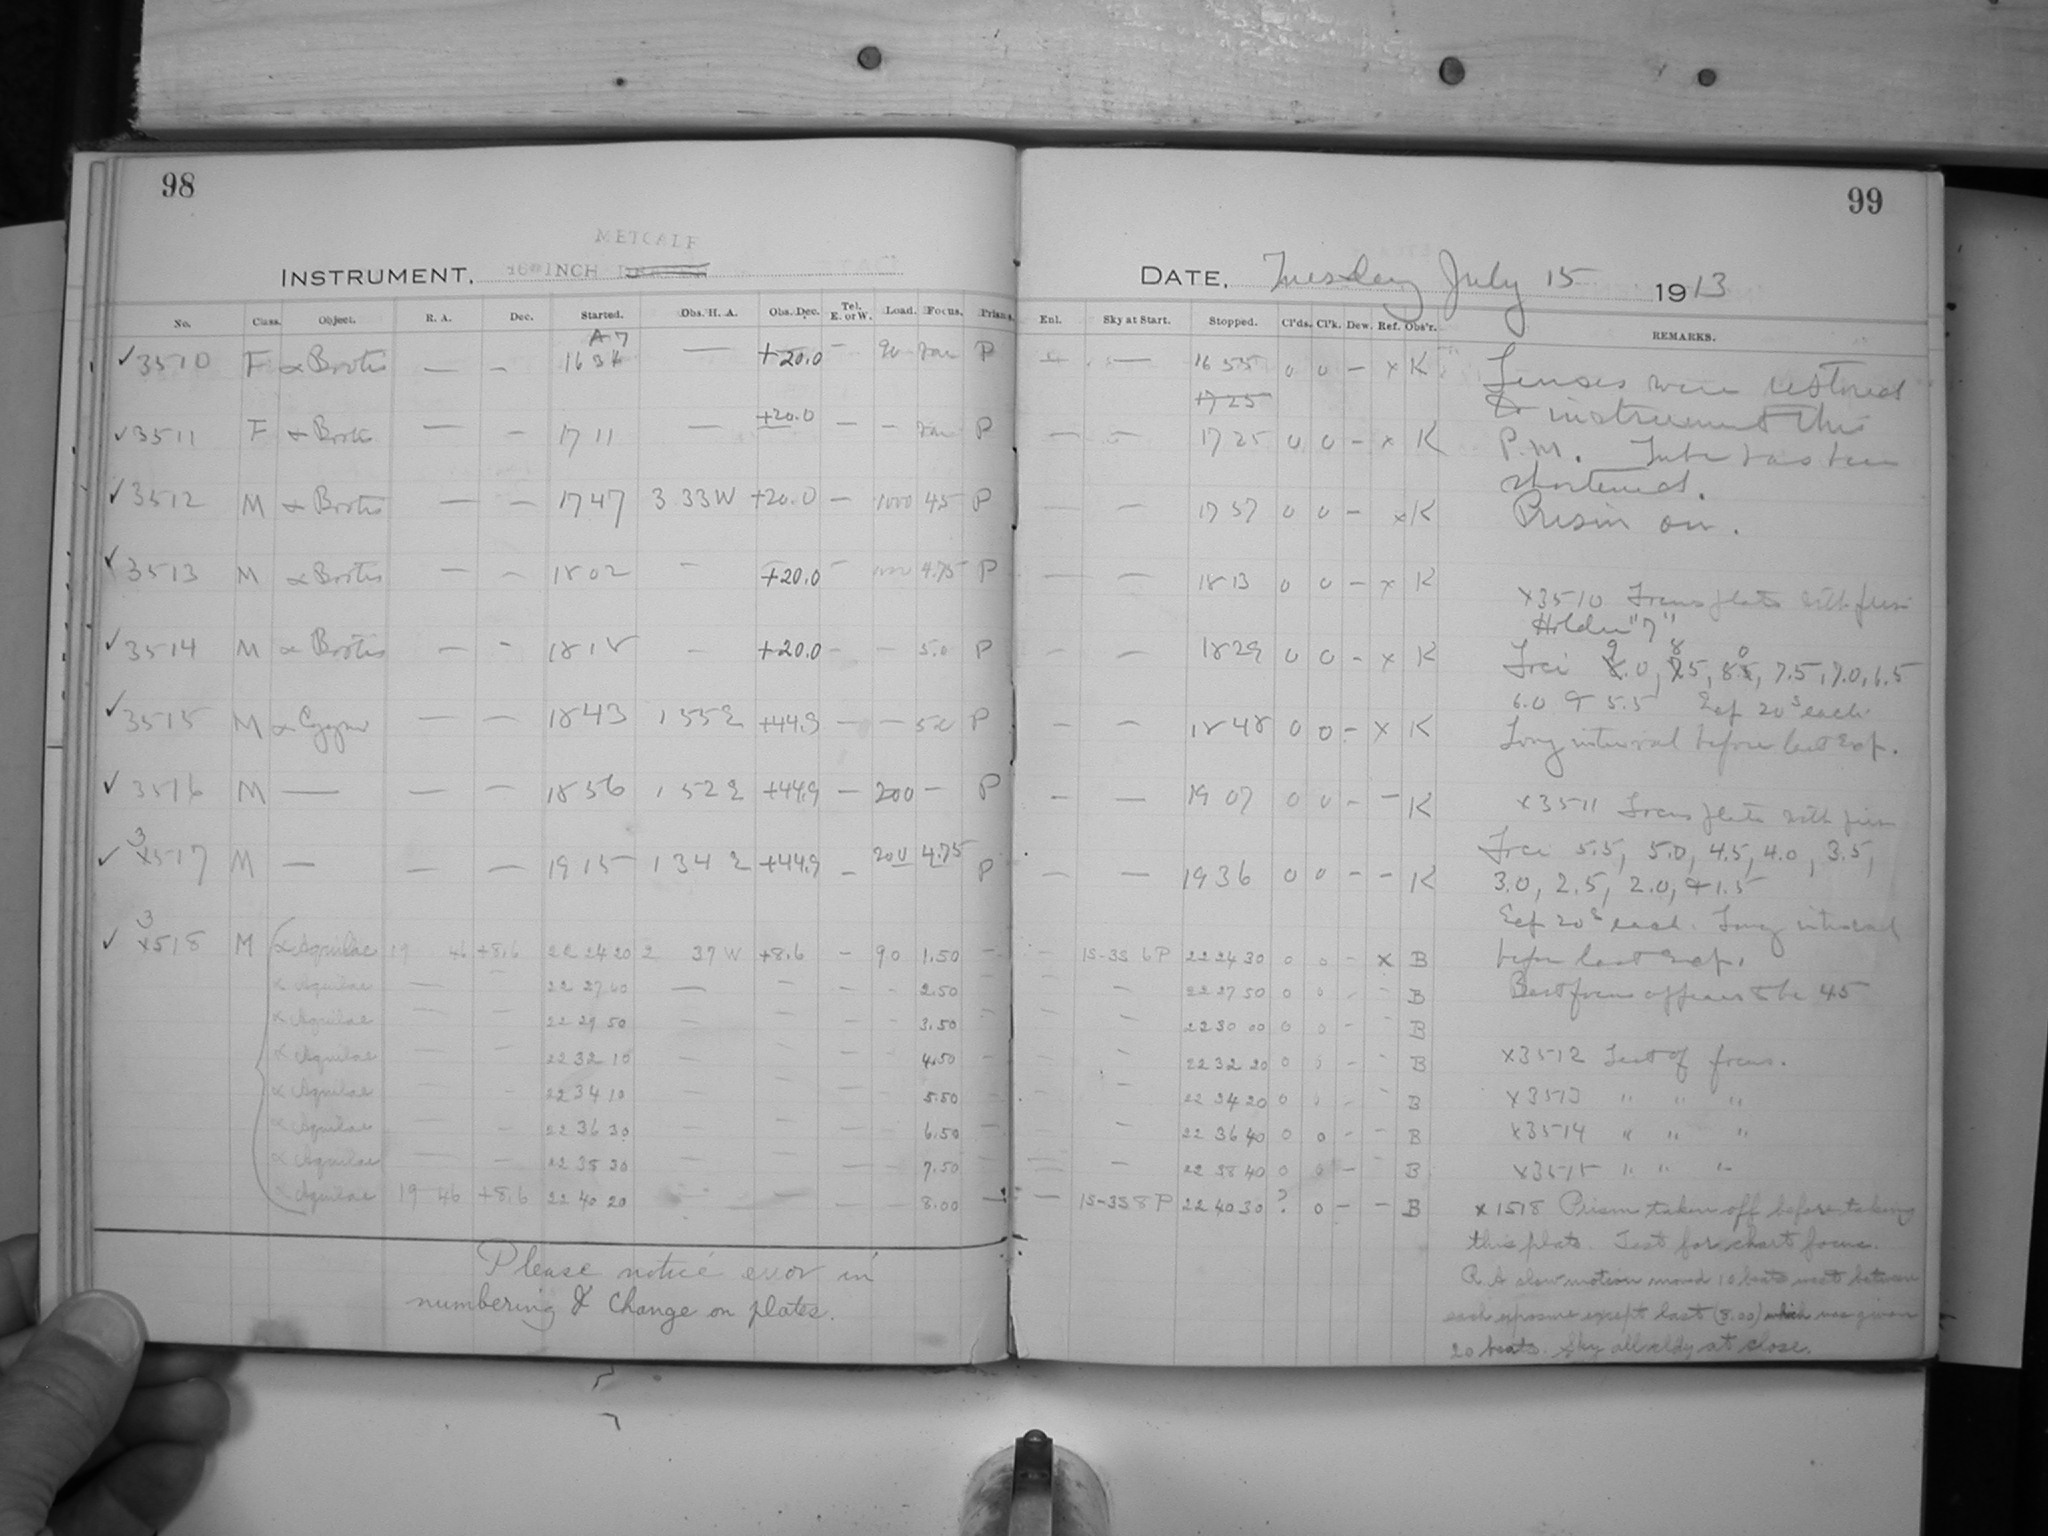 98
METCALF
INSTRUMENT, 16 INCH
No. Class. Object. R. A. Dec. Started. Obs. H. A. Obs. Dec. Tel. E. or W. Load. Focus. Prism.
3510 F α Bootis — — 16 — +20.0 — P
3511 F α Bootis — — 17 11 — +20.0 — — P
3512 M α Bootis — — 17 47 3 33 W +20.0 — 1000 45 P
3513 M α Bootis — — 18 02 - +20.0 — 4.75 P
3514 M α Bootis — - 18 18 - +20.0 — — 5.0 P
3515 M α Cygni — — 18 43 1 55 E +44.9 — — P
3516 M — — — 18 56 1 52 E +44.9 — 200 — P
3517 M — — — 19 15 1 34 E +44.9 — 200 4.75 P
3518 M α Aquilae 19 46 +8.6 22 24 20 2 37 W +8.6 — 90 1.50 —
α Aquilae — — 22 27 40 — — — - 2.50 —
α Aquilae — — 22 29 50 — — — - 3.50 —
α Aquilae — — 22 32 10 — — — — 4.50 —
α Aquilae — - 22 34 10 — — — — 5.50 —
α Aquilae — — 22 36 30 — — — — 6.50 —
α Aquilae — — 22 38 30 — — — — 7.50 —
α Aquilae 19 46 +8.6 22 40 20 — — — — 8.00 —
Please notice error in
numbering & change on plates.
99
DATE, Tuesday July 15 1913
Enl. Sky at Start. Stopped. Cl'ds. Cl'k. Dew. Ref. Obs'r. REMARKS.
— 16 55 0 0 — x K
17 25
— — 17 25 0 0 — x K
— — 17 57 0 0 — x K
— — 18 13 0 0 — x K
— — 18 29 0 0 — x K
— — 18 48 0 0 — x K
— — 19 07 0 0 — — K
— — 19 36 0 0 — — K
— 15-35 6 P 22 24 30 0 0 — x B
— — 22 27 50 0 0 - - B
— — 22 30 00 0 0 — - B
— — 22 32 20 0 0 — - B
— — 22 34 20 0 0 — - B
— 22 36 40 0 0 — — B
— — 22 38 40 0 0 — — B
— 15-35 8 P 22 40 30 ? 0 — — B
Lenses were restored
to instrument this
P.M. Tube has been
shortened.
Prism on.
x3510 Focus plate with prism
Holder "7"
Foci 9.0, 8.5, 8.0, 7.5, 7.0, 6.5
6.0 & 5.5 Exp 20s each.
Long interval before last Exp.
x3511 Focus plate with prism
Foci 5.5, 5.0, 4.5, 4.0, 3.5,
3.0, 2.5, 2.0, & 1.5
Exp 20s each. Long interval
before last Exp.
Best focus appears to be 45
x3512 Test of focus.
x3513 " " "
x3514 " " "
x3515 " " "
x 1518 Prism taken off before taking
this plate. Test for chart focus.
R. A slow motion moved 10 beats west between
each exposure except last (8.00) which was given
20 beats. Sky all cldy at close.